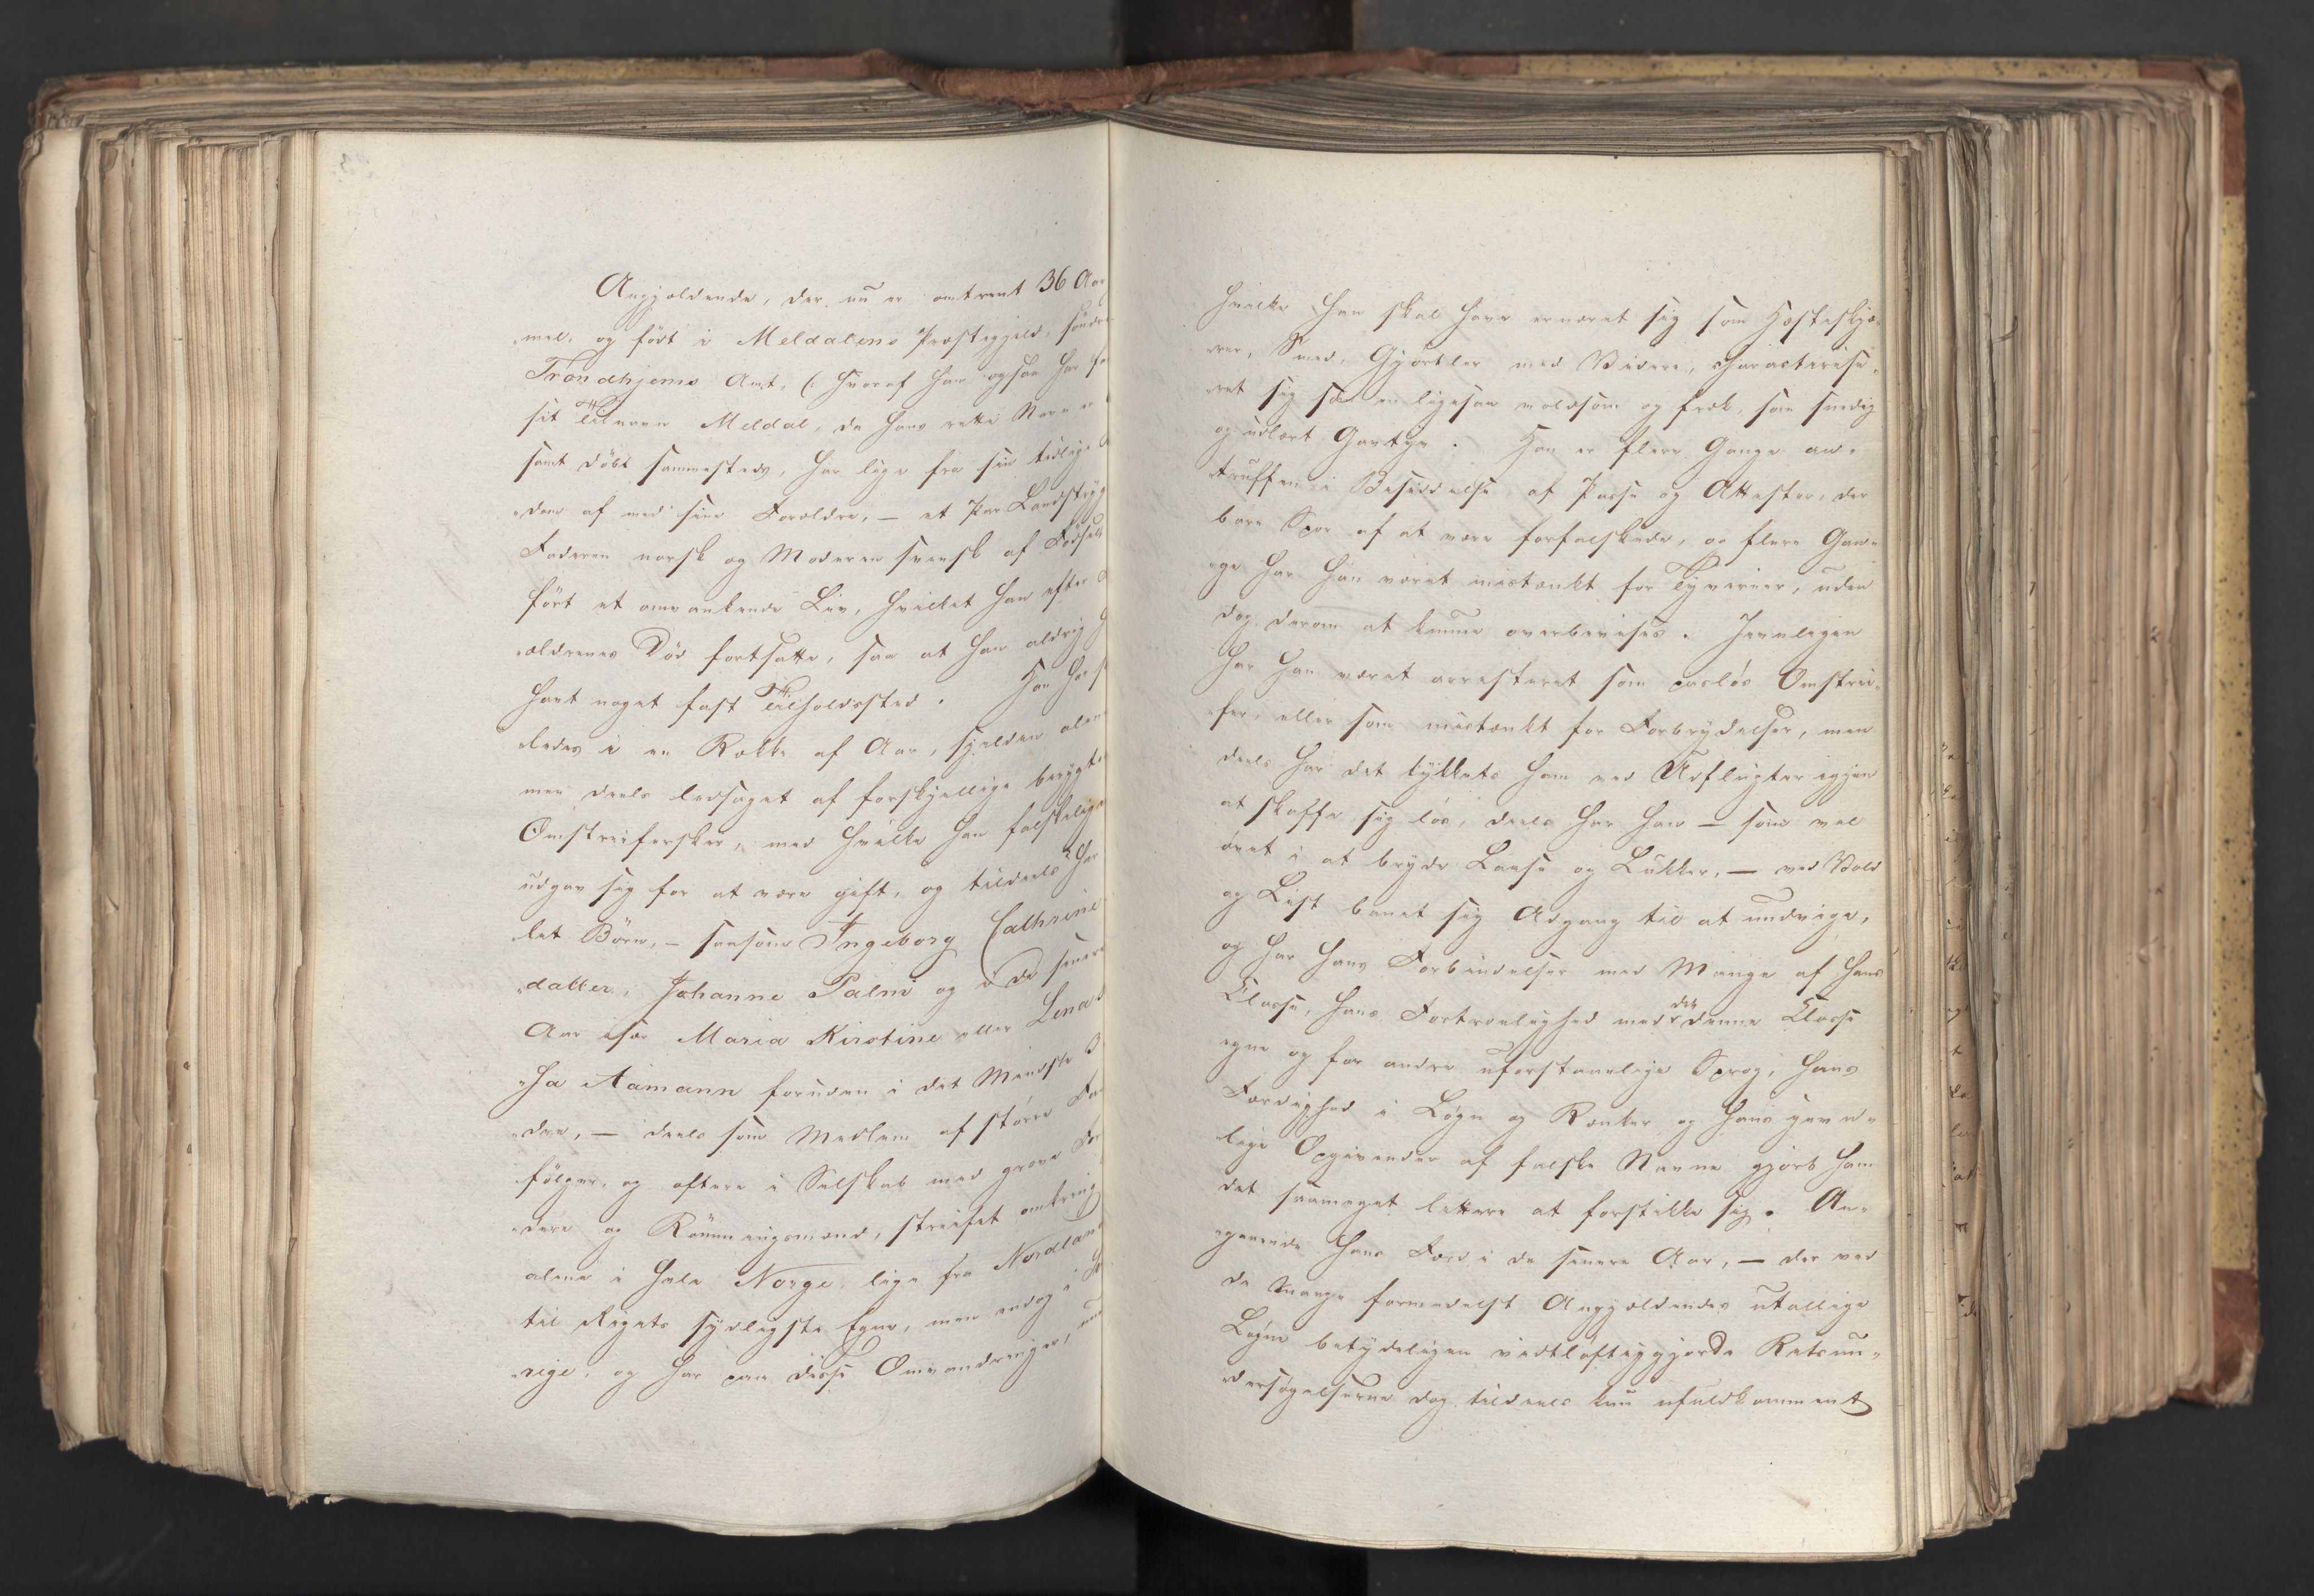 Angjældende, der nu er omtrent 36 Aar
mel, og født i Meldalens Præstegjeld, søndre
Trondhjems Amt, (: hvoraf han ogsaa har
sit Tilnavn Meldal, da hans rette Navn er
samt døbt sammesteds, har lige fra sin tidlige
dom af med sine Forældre, — et Par Landstryg
Faderen norsk og Moderen svensk af Fødsel
ført et omvankende Liv, hvilket han efter
ældrenes Død fortsatte, saa at han aldrig
havt noget fast Tilholdssted. Han har
ledes i en Række af Aar, sjelden alene
men deels ledsaget af forskjellige berygte
Omstreifersker, med hvilke han falskelige
udgav sig for at være gift, og tildeels har
let Børn, — saasom Ingeborg Cathrine
datter, Johanne Palmi og i de senere
Aar især Maria Kirstine eller Lena
sa Aamann foruden i det Mindste 3
dre, — deels som Medlem af større
følger, og oftere i Selskab med grove
dere og Rømningsmænd, streifet omkring
alene i hele Norge, lige fra Nordlan
til Rigets sydligste Egne, men endog i
rige, og har paa disse Omvandringer,
hvilke han skal have ernæret sig som Hesteskjæ-
rer, Smed, Gjørtler med Videre, characterise-
ret sig som en ligesaa voldsom og fræk, som snedig
og udlært Gavtyv. Han er flere Gange an-
truffen i Besiddelse af Passe og Attester, der
bare Spor af at være forfalskede, og flere Gan-
ge har han været mistænkt for Tyverier, uden
dog derom at kunne overbevises. Jevnligen
har han været arresteret som pasløs Omstrei-
fer, eller som mistænkt for Forbrydelser, men
deels har det lykkets ham ved Udflugter igjen
at skaffe sig løs, deels har han — som vel
øvet i at bryde Laase og Lukker, — ved Vold
og List banet sig Adgang til at undvige,
og har hans Forbindelser med Mange af hans
Classe, hans Fortrolighed med det denne Classe
egne og for andre uforstaaelige Sprog, hans
Færdighed i Løgn og Rænker og hans jevn-
lige Opgivender af falske Navne gjort ham
det saameget lettere at forstikke sig. An-
gaaende hans Færd i de senere Aar, — der ved
de mange formedelst Angjældendes utallige
Løgne betydeligen vidtløftiggjorde Retsun-
dersøgelserne dog tildeels kun ufuldkomment